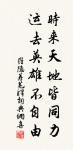 時來天地皆同力
運去英雄不自由